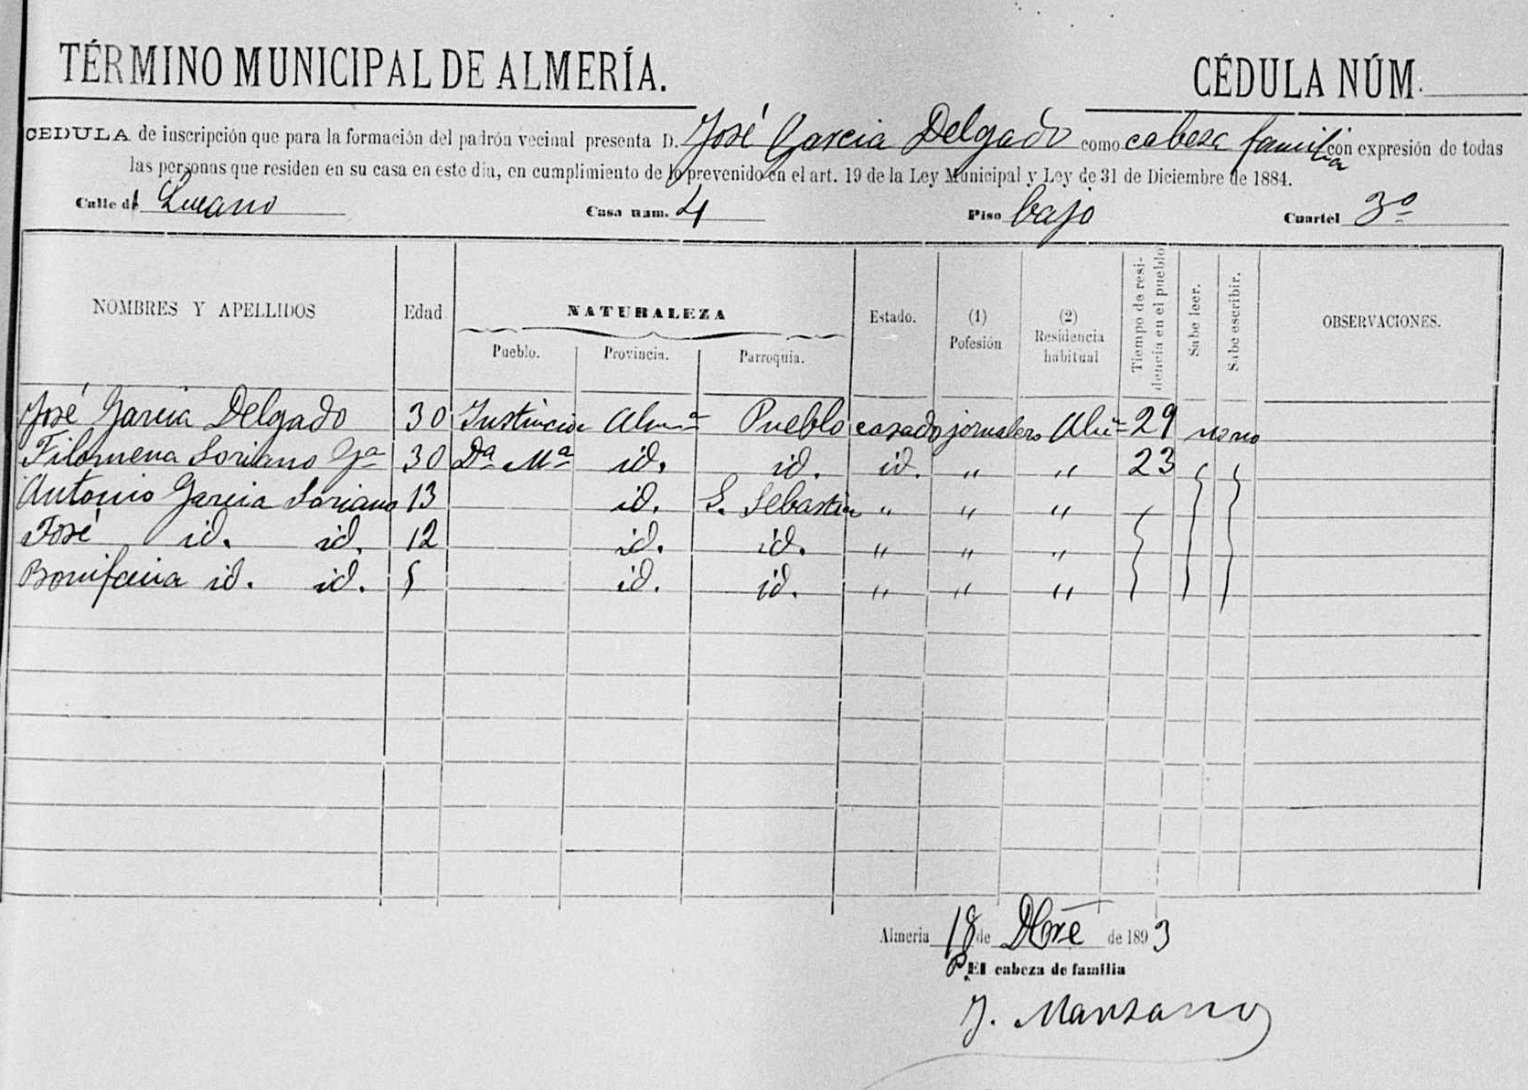 TÉRMINO MUNICIPAL DE ALMERÍA. CÉDULA NÚM.
CEDULA de inscripción que para la formación del padrón vecinal presenta D. José Garcia Delgado como cabeza familia con expresión de todas
las personas que residen en su casa en este dia, en cumplimiento de lo prevenido en el art. 19 de la Ley Municipal y Ley de 31 de Diciembre de 1884.
Calle de Casa num. 4 Piso bajo Cuartel 3º
NOMBRES Y APELLIDOS Edad NATURALEZA Pueblo. Provincia. Parroquia. Estado. (1) Pofesión (2) Residencia habitual Tiempo de resi- dencia en el pueblo Sabe leer. Sabe escribir. OBSERVACIONES.
José Garcia Delgado 30 Instincion Almª Pueblo casado jornalero 29 no no
Filomena Soriano Gª 30 Dª Mª id. id. id. " " 23
Antonio Garcia Soriano 13 id. S. Sebastian " " "
José id. id. 12 id. id. " " "
Bonifacia id. id. 5 id. id. " " "
Almeria 18 de Dbre de 1893
P. El cabeza de familia
J. Manzano